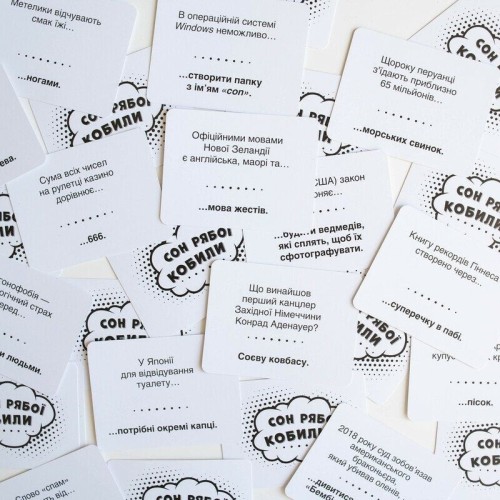 Метелики відчувають
смак їжі...
...ногами.
В операційній системі
Windows неможливо...
...створити папку
з ім'ям «con».
Щороку перуанці
з'їдають приблизно
65 мільйонів...
...морських свинок.
СОН РЯБОЇ
КОБИЛИ
Офіційними мовами
Нової Зеландії
є англійська, маорі та...
...мова жестів.
Сума всіх чисел
на рулетці казино
дорівнює...
...666.
США) закон
...будити ведмедів,
які сплять, щоб їх
сфотографувати.
СОН РЯБОЇ
КОБИЛИ
Книгу рекордів Гіннеса
створено через...
...суперечку в пабі.
Що винайшов
перший канцлер
Західної Німеччини
Конрад Аденауер?
Соєву ковбасу.
страх
людьми.
У Японії
для відвідування
туалету...
...потрібні окремі капці.
...пісок.
СОН РЯБОЇ
КОБИЛИ
СОН РЯБОЇ
КОБИЛИ
2018 року суд зобов'язав
американського
браконьєра,
який убивав оленів,
...дивитися
«Бембі
Слово «спам»
від...